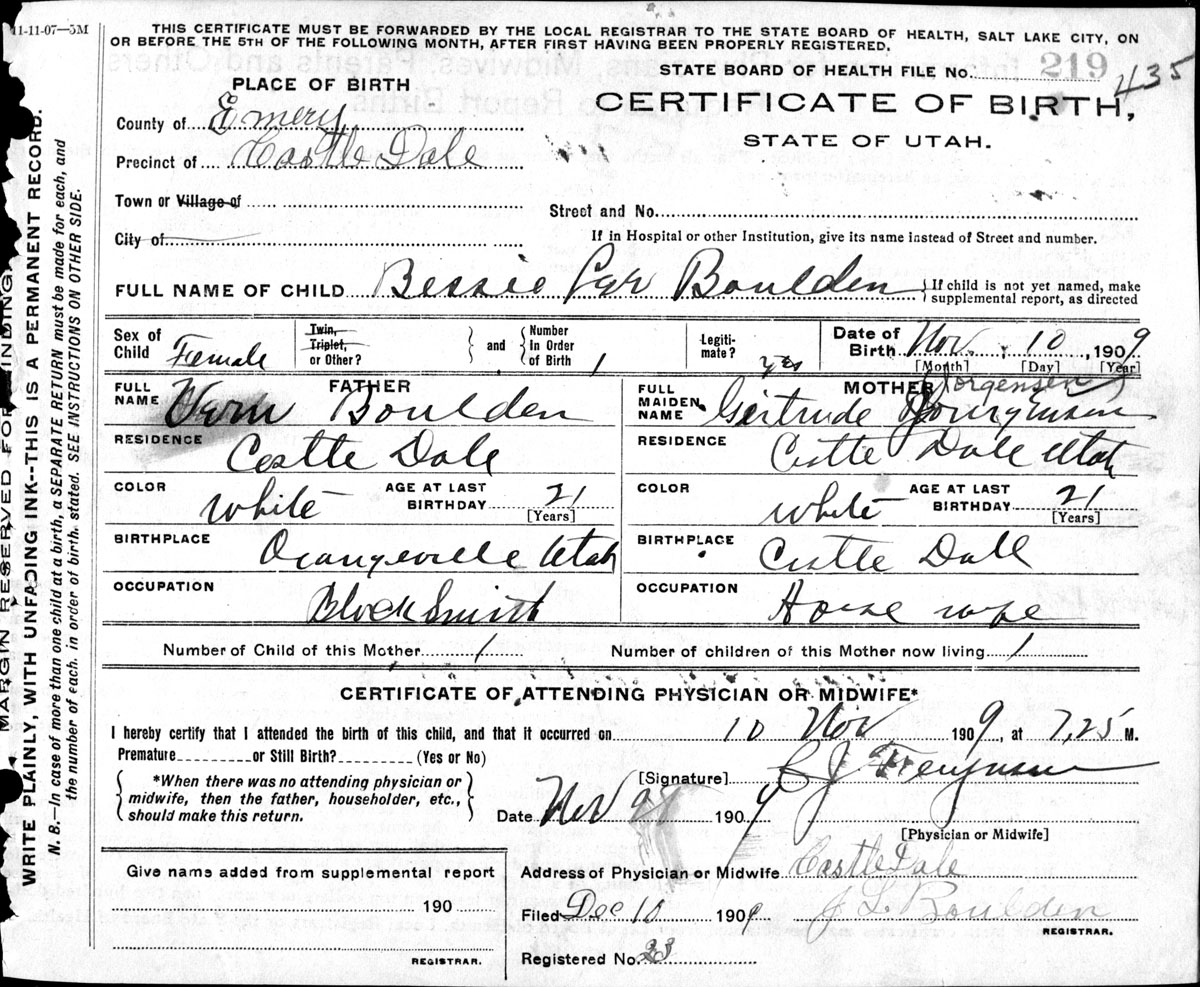 11-11-07—5M
THIS CERTIFICATE MUST BE FORWARDED BY THE LOCAL REGISTRAR TO THE STATE BOARD OF HEALTH, SALT LAKE CITY, ON
OR BEFORE THE 5TH OF THE FOLLOWING MONTH, AFTER FIRST HAVING BEEN PROPERLY REGISTERED.
STATE BOARD OF HEALTH FILE No. 219 435
PLACE OF BIRTH
CERTIFICATE OF BIRTH,
STATE OF UTAH.
County of Emery
Precinct of Castle Dale
Town or Village of
Street and No.
City of
If in Hospital or other Institution, give its name instead of Street and number.
FULL NAME OF CHILD Bessie Boulden
If child is not yet named, make
supplemental report, as directed
Sex of Child Female
Twin, Triplet, or Other?
and
Number In Order of Birth 1
Legiti-mate? yes
Date of Birth Nov. 10, 1909
[Month] [Day] [Year]
FATHER
FULL NAME Vern Boulden
MOTHER
FULL MAIDEN NAME Gertrude Jorgensen
RESIDENCE Castle Dale
RESIDENCE Castle Dale Utah
COLOR white AGE AT LAST BIRTHDAY 21 [Years]
COLOR white AGE AT LAST BIRTHDAY 21 [Years]
BIRTHPLACE Orangeville Utah
BIRTHPLACE Castle Dale
OCCUPATION Black Smith
OCCUPATION House wife
Number of Child of this Mother 1
Number of children of this Mother now living 1
CERTIFICATE OF ATTENDING PHYSICIAN OR MIDWIFE*
I hereby certify that I attended the birth of this child, and that it occurred on 10 Nov 1909, at 7,25 M.
Premature or Still Birth? (Yes or No)
*When there was no attending physician or
midwife, then the father, householder, etc.,
should make this return.
[Signature]
Date Nov 1909
[Physician or Midwife]
Address of Physician or Midwife Castle Dale
Filed Dec 10 1909 J L Boulden
REGISTRAR.
Registered No. 23
Give name added from supplemental report
190
REGISTRAR.
MARGIN RESERVED FOR BINDING.
WRITE PLAINLY, WITH UNFADING INK--THIS IS A PERMANENT RECORD.
N. B.—In case of more than one child at a birth, a SEPARATE RETURN must be made for each, and
the number of each, in order of birth, stated. SEE INSTRUCTIONS ON OTHER SIDE.